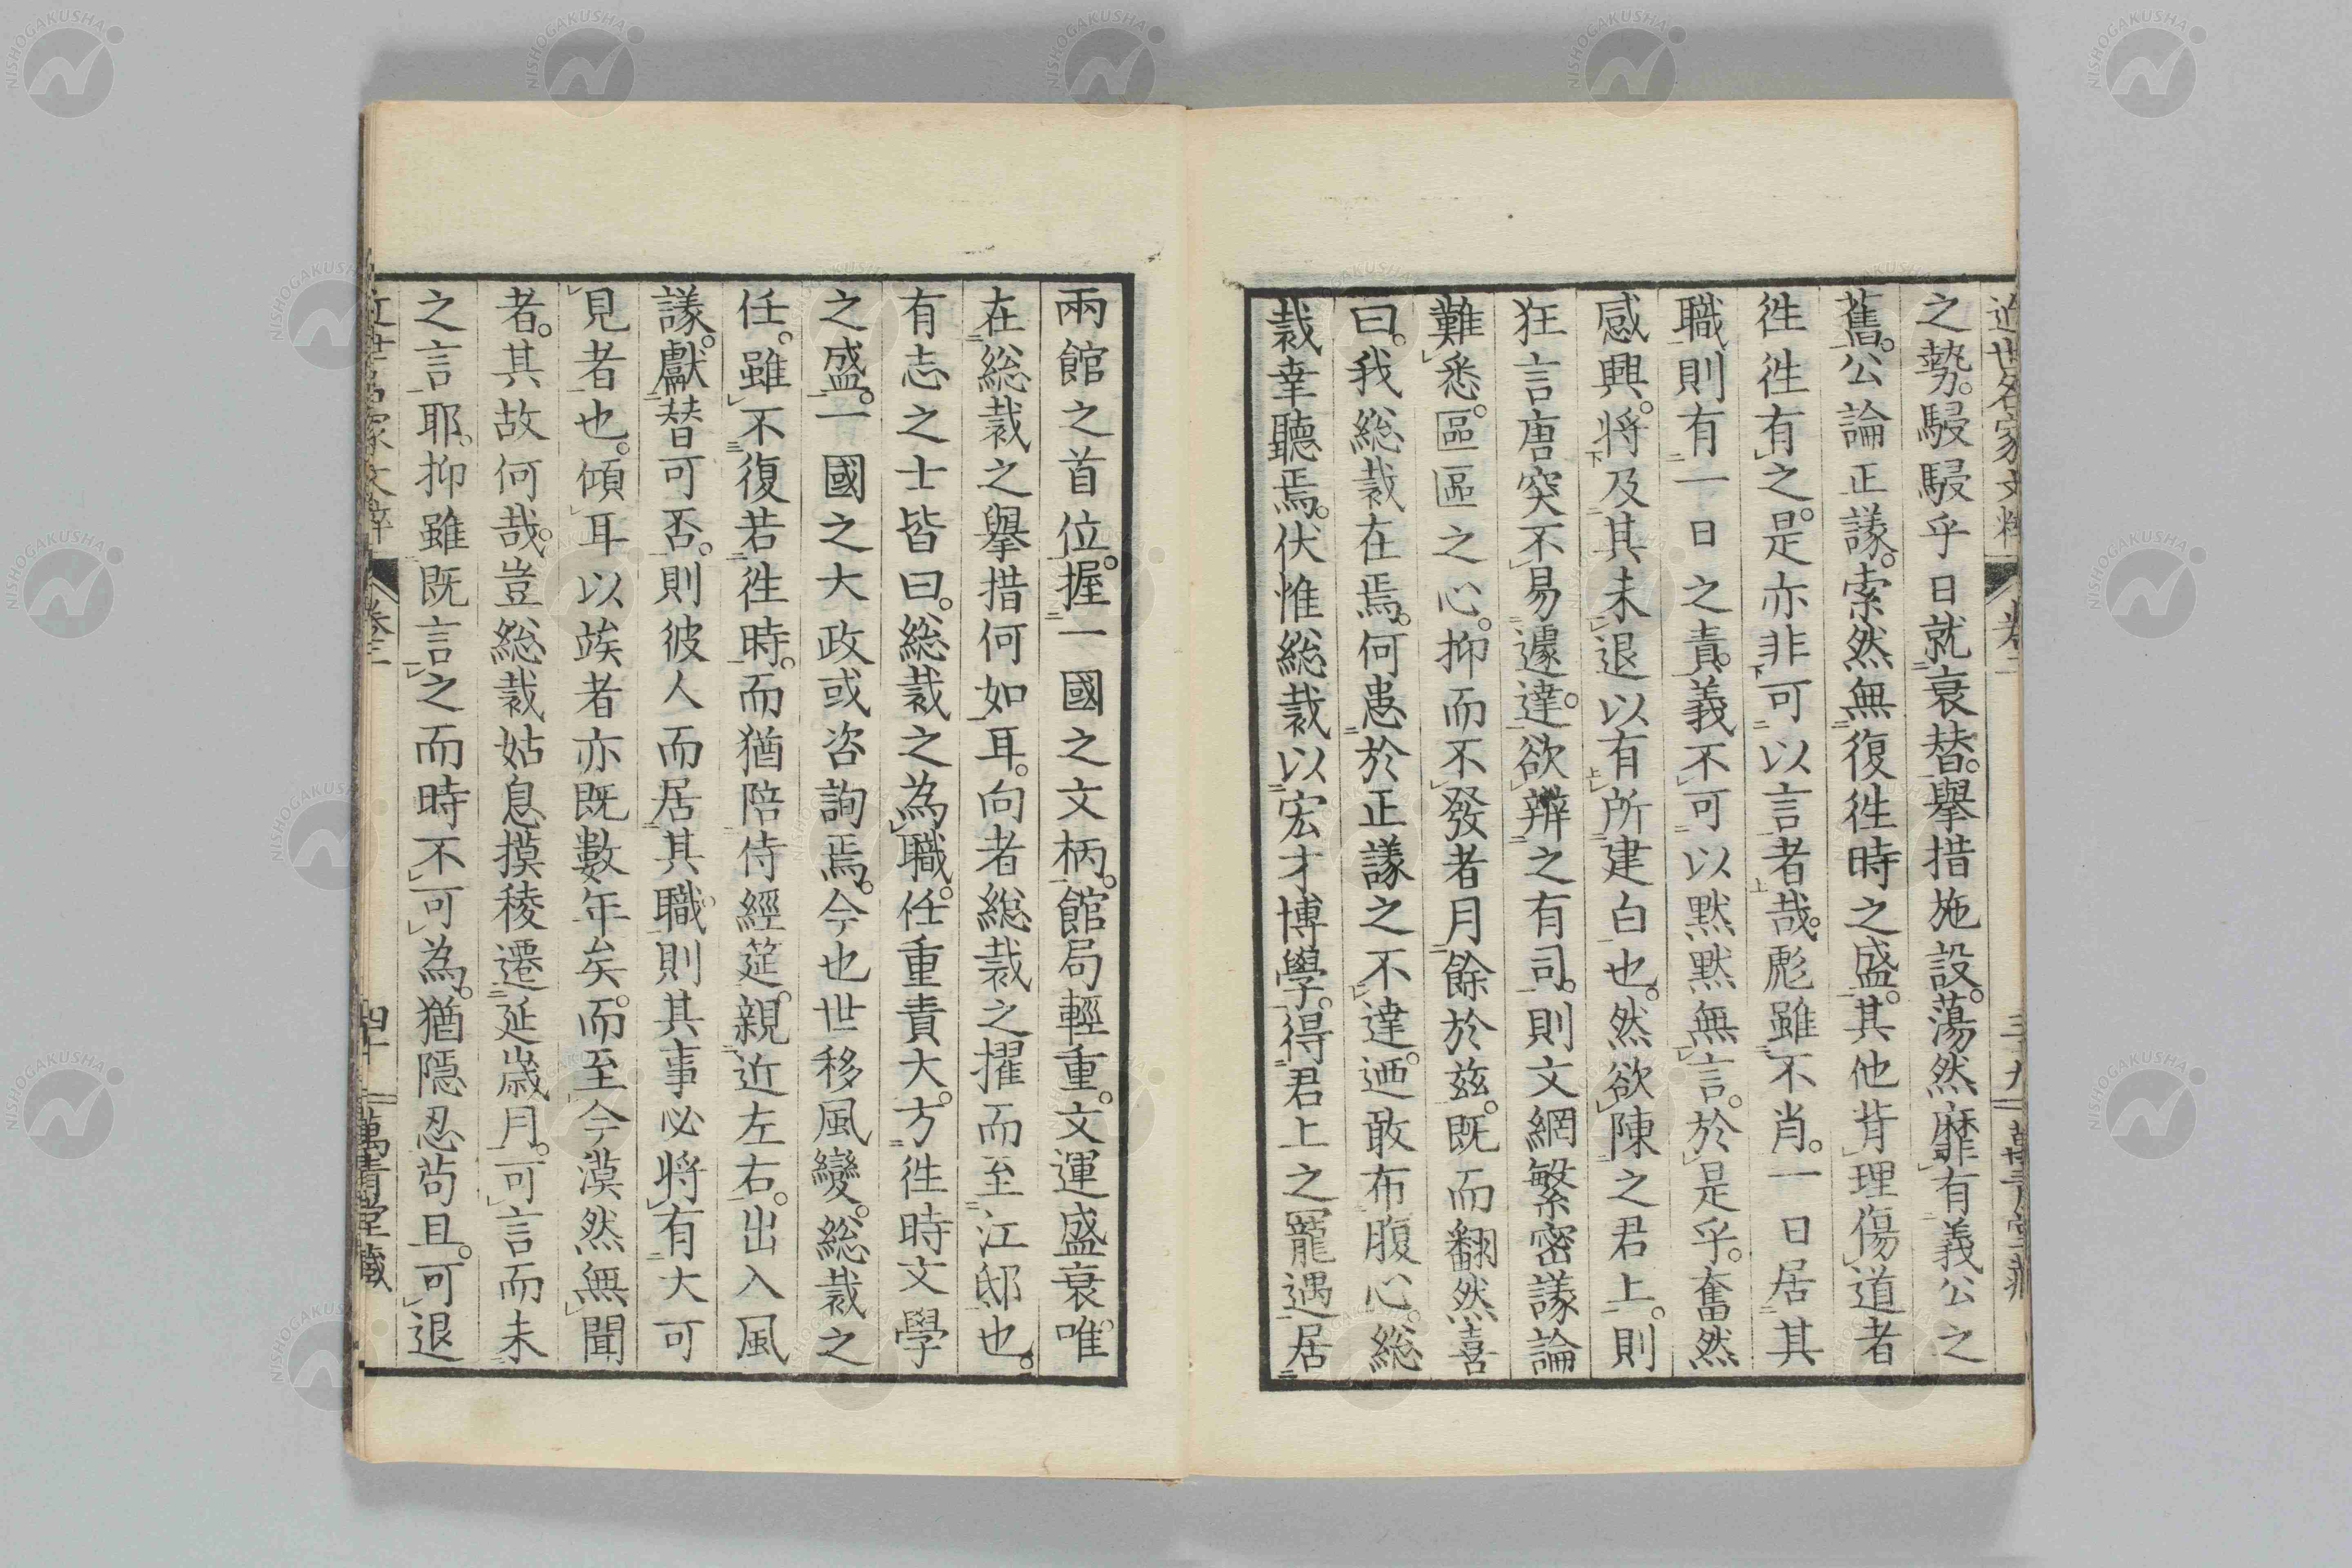 之勢。駸駸乎日就衰替。擧措施設。蕩然靡有義公之
舊。公論正議。索然無復徃時之盛。其他背理傷道者
徃徃有之。是亦非可以言者哉。彪雖不肖。一日居其
職則有一日之責。義不可以默默無言。於是乎。奮然
感興。將及其未退以有所建白也。然欲陳之君上。則
狂言唐突不易遽達。欲辨之有司。則文網繁密議論
難悉。區區之心。抑而不發者月餘於兹。既而翻然喜
曰。我総裁在焉。何患於正議之不達。迺敢布腹心。総
裁幸聽焉。伏惟総裁以宏才博學。得君上之寵遇居
兩館之首位。握一國之文柄。館局輕重。文運盛衰。唯
在総裁之擧措何如耳。向者総裁之擢而至江邸也。
有志之士皆曰。総裁之為職。任重責大。方徃時文學
之盛。一國之大政或咨詢焉。今也世移風變。総裁之
任。雖不復若徃時。而猶陪侍經筵。親近左右。出入風
議。獻替可否。則彼人而居其職。則其事必將有大可
見者也。傾耳以竢者亦既數年矣。而至今漠然無聞
者。其故何哉。豈総裁姑息摸稜遷延歳月。可言而未
之言耶。抑雖既言之而時不可為。猶隱忍苟且。可退
近世名家文粹 卷二 四十 萬青堂藏
NISHOGAKUSHA